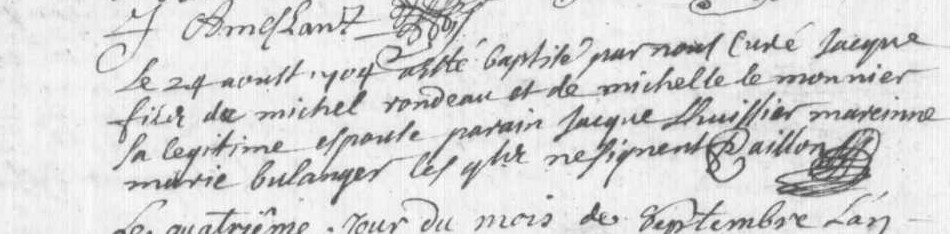 J Ameslant
Le 24 aoust 1704 a esté baptisé par nous Curé Jacque
fils de michel rondeau et de michelle le monnier
sa legitime espouse parain Jacque Lhuissier mareinne
marie bulanger les qls ne signent Paillon
Le quatriême Jour du mois de Septembre Lan